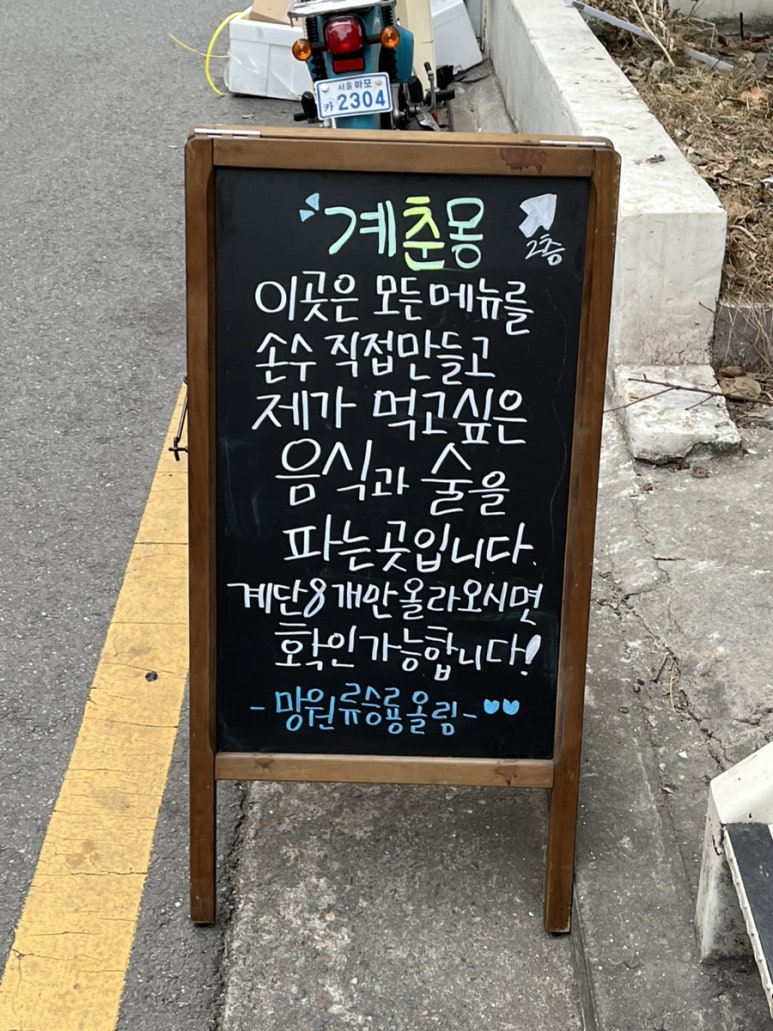 서울 마포
카 2304
계춘몽
2층
이곳은 모든 메뉴를
손수 직접만들고
제가 먹고싶은
음식과 술을
파는곳입니다.
계단8개만올라오시면
확인가능합니다!
- 망원류승룡올림 - ♥♥